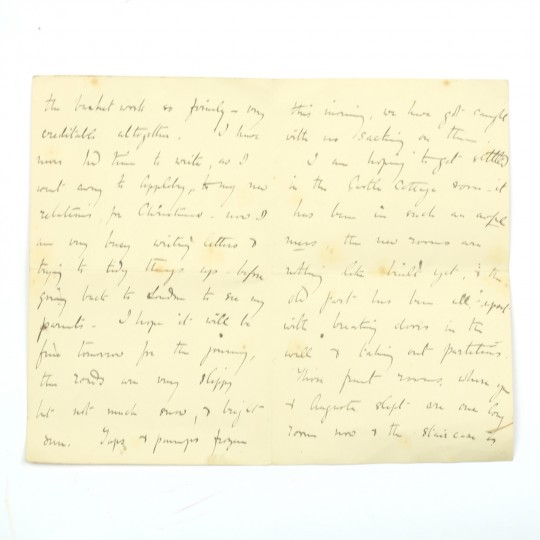 the basket work so firmly - very
creditable altogether. I have
never had time to write, as I
went away to Appleby, to my new
relations for Christmas - now I
am very busy writing letters &
trying to tidy things up before
going back to London to see my
parents - I hope it will be
fine tomorrow for the journey,
the roads are very slippy
but not much snow, & bright
sun. Taps & pumps frozen
this morning, we have got
with us on them
I am hoping to get settled
in the Castle Cottage soon - it
has been in such an awful
mess the new rooms are
nothing like built yet, & the
old part has been all upset
with breaking doors in the
wall & taking out partitions.
Those front rooms, where you
& Augusta slept are one long
room now & the staircase is